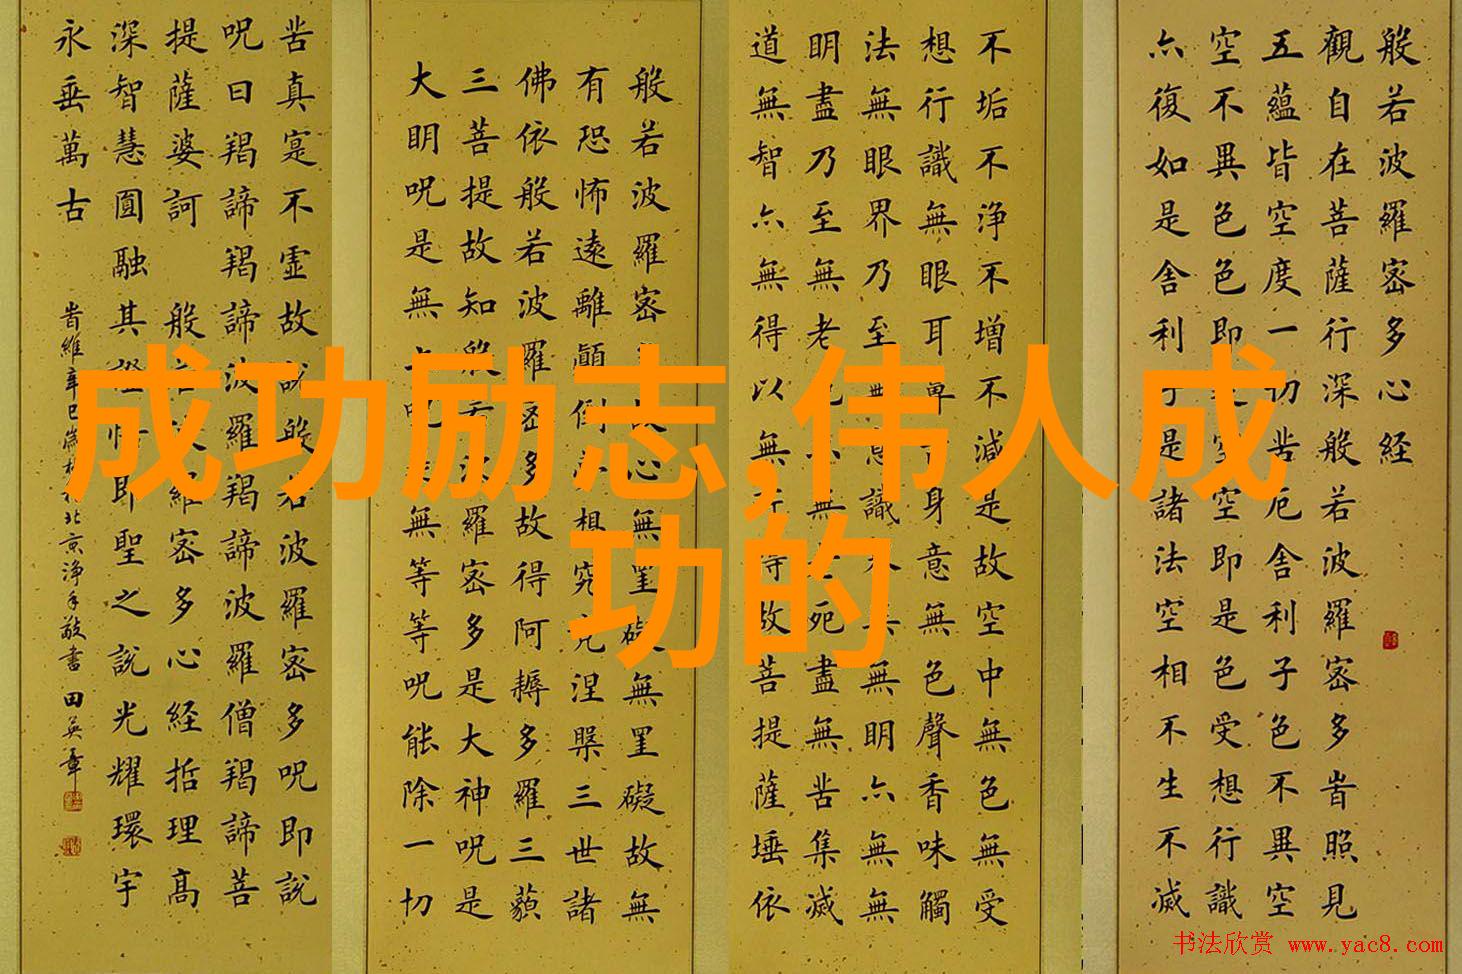 成功励志,伟人成
功的
般若波羅密多心经
觀自在菩薩行深般若波羅密多峕照見
五蘊皆空度一切苦厄舍利子色不異空
空不異色色即是空空即是色受想行識
亦復如是舍利子是諸法空相不生不滅
不垢不浄不增不減是故空中無色無受
想行識無眼耳鼻舌身意無色聲香味觸
法無眼界乃至無意識界無無明亦無無
明盡乃至無老死亦無老死盡無苦集滅
道無智亦無得以無所得故菩提薩埵依
般若波羅密多故心無罣礙無罣礙故無
有恐怖遠離顛倒夢想究竟涅槃三世諸
佛依般若波羅密多故得阿耨多羅三藐
三菩提故知般若波羅密多是大神呪是
大明呪是無上呪是無等等呪能除一切
苦真寔不虚故說般若波羅密多呪即說
呪曰羯諦羯諦波羅羯諦波羅僧羯諦菩
提薩婆訶 般若波羅密多心経括理高
深智慧圓融其證悟即聖之說光耀環宇
永垂萬古
峕維辛巳歲 北京浄手敬書 田英章
书法欣赏 www.yac8.com